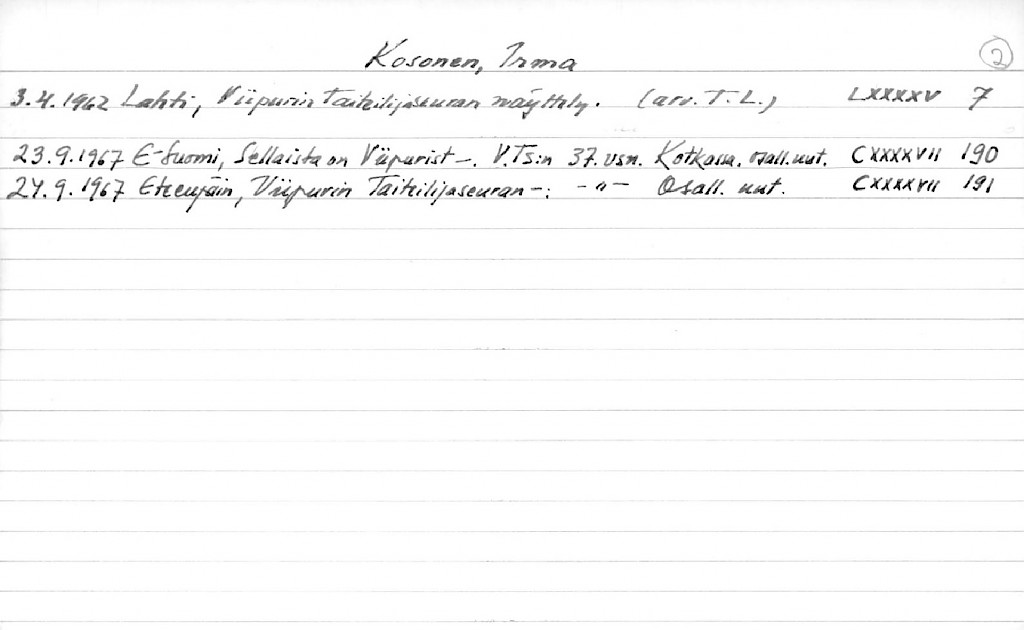 Kosonen, Irma 2
3.4.1962 Lahti, Viipurin Taiteilijaseuran näyttely. (arv. T. L.) LXXXXV 7
23.9.1967 E-Suomi, Sellaista on Viipurist-. V.Ts:n 37. vsn. Kotkassa. osall. uut. CXXXXVII 190
24.9.1967 Eteenpäin, Viipurin Taiteilijaseuran-: -"- Osall. uut. CXXXXVII 191